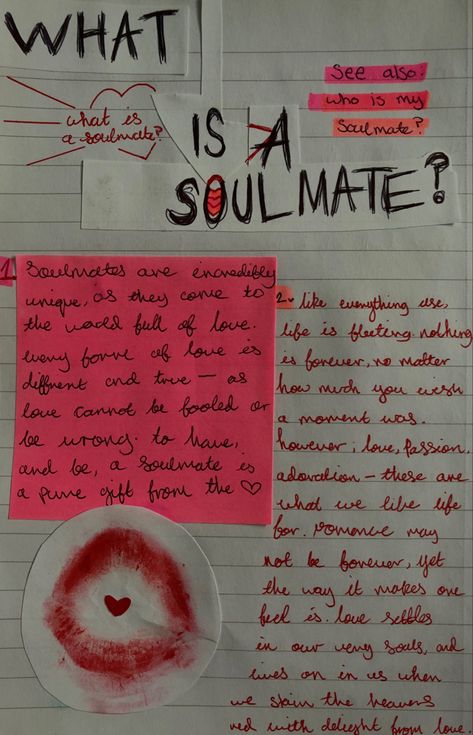 WHAT
IS A
SOULMATE?
what is
a soulmate?
See also:
who is my
soulmate?
1. Soulmates are incredibly
unique, as they come to
the world full of love.
every form of love is
diffrent and true — as
love cannot be fooled or
be wrong. to have,
and be, a soulmate is
a pure gift from the ♡
2. like everything else,
life is fleeting. nothing
is forever, no matter
how much you wish
a moment was.
however, love, passion,
adoration — these are
what we live life
for. romance may
not be forever, yet
the way it makes one
feel is. love settles
in our very souls, and
lives on in us when
we stain the heavens
red with delight from love